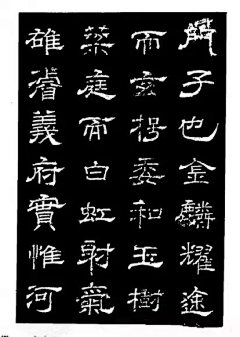 門子也金麟耀途
而玄枵委和玉樹
榮庭而白虹射氣
雄義府實惟河